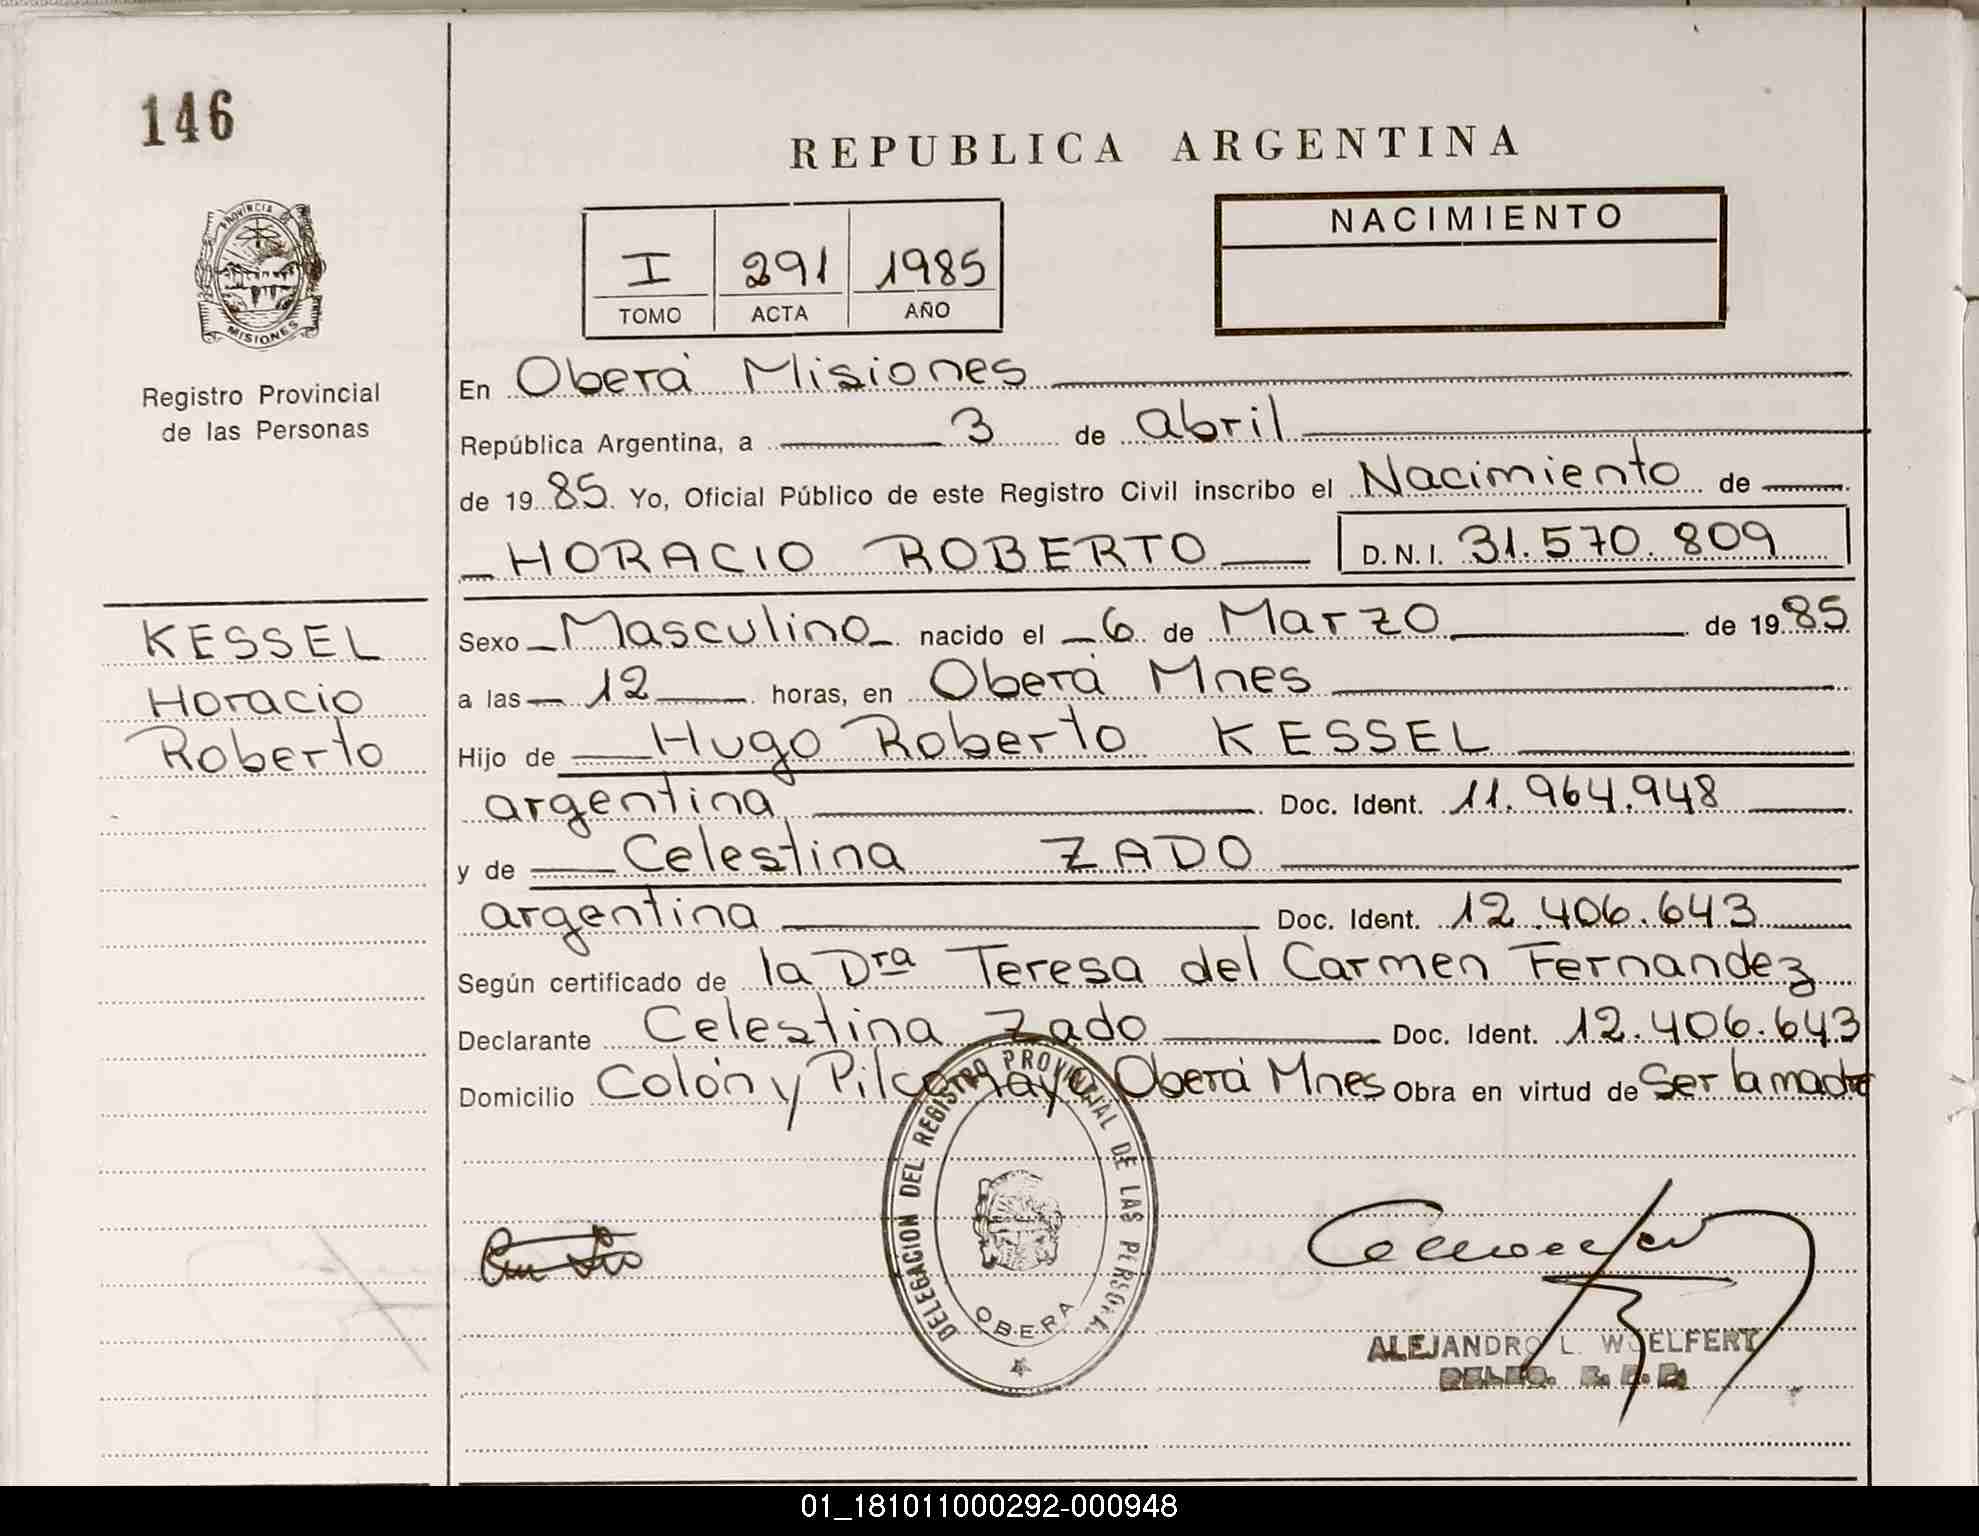 146
REPUBLICA ARGENTINA
PROVINCIA DE
MISIONES
I 291 1985
TOMO ACTA AÑO
NACIMIENTO
Registro Provincial
de las Personas
En Oberá Misiones
República Argentina, a 3 de abril
de 1985 Yo, Oficial Público de este Registro Civil inscribo el Nacimiento de
HORACIO ROBERTO D.N.I. 31.570.809
KESSEL
Horacio
Roberto
Sexo Masculino nacido el 6 de Marzo de 1985
a las 12 horas, en Oberá Mnes
Hijo de Hugo Roberto KESSEL
argentina Doc. Ident. 11.964.948
y de Celestina ZADO
argentina Doc. Ident. 12.406.643
Según certificado de la Dra Teresa del Carmen Fernandez
Declarante Celestina Zado Doc. Ident. 12.406.643
Domicilio Colón y Pilcomayo Oberá Mnes Obra en virtud de Ser la madre
DELEGACION DEL REGISTRO PROVINCIAL DE LAS PERSONA
OBERA
ALEJANDRO L. WOELFERT
DELEG. R.
01_181011000292-000948